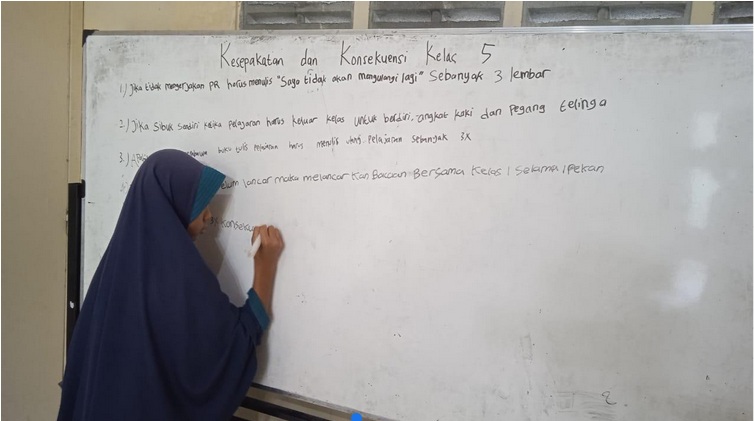 Kesepakatan dan Konsekuensi Kelas 5
1) Jika tidak mengerjakan PR harus menulis "Saya tidak akan mengulangi lagi" Sebanyak 3 lembar
2) Jika Sibuk Sendiri ketika pelajaran harus keluar kelas untuk berdiri, angkat kaki dan Pegang telinga
3.) buku tulis pelajaran harus menulis ulang pelajaran sebanyak 3x
lancar maka melancarkan Bacaan Bersama Kelas 1 Selama 1 Pekan